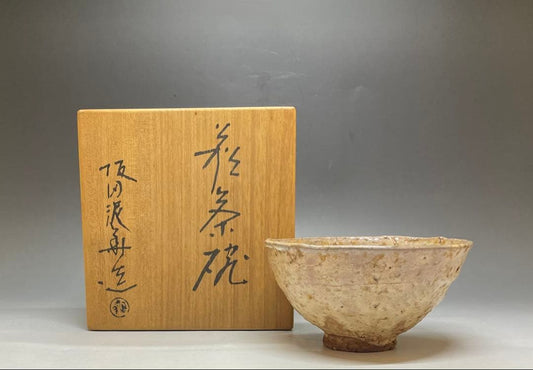 萩茶碗
坂田泥華造